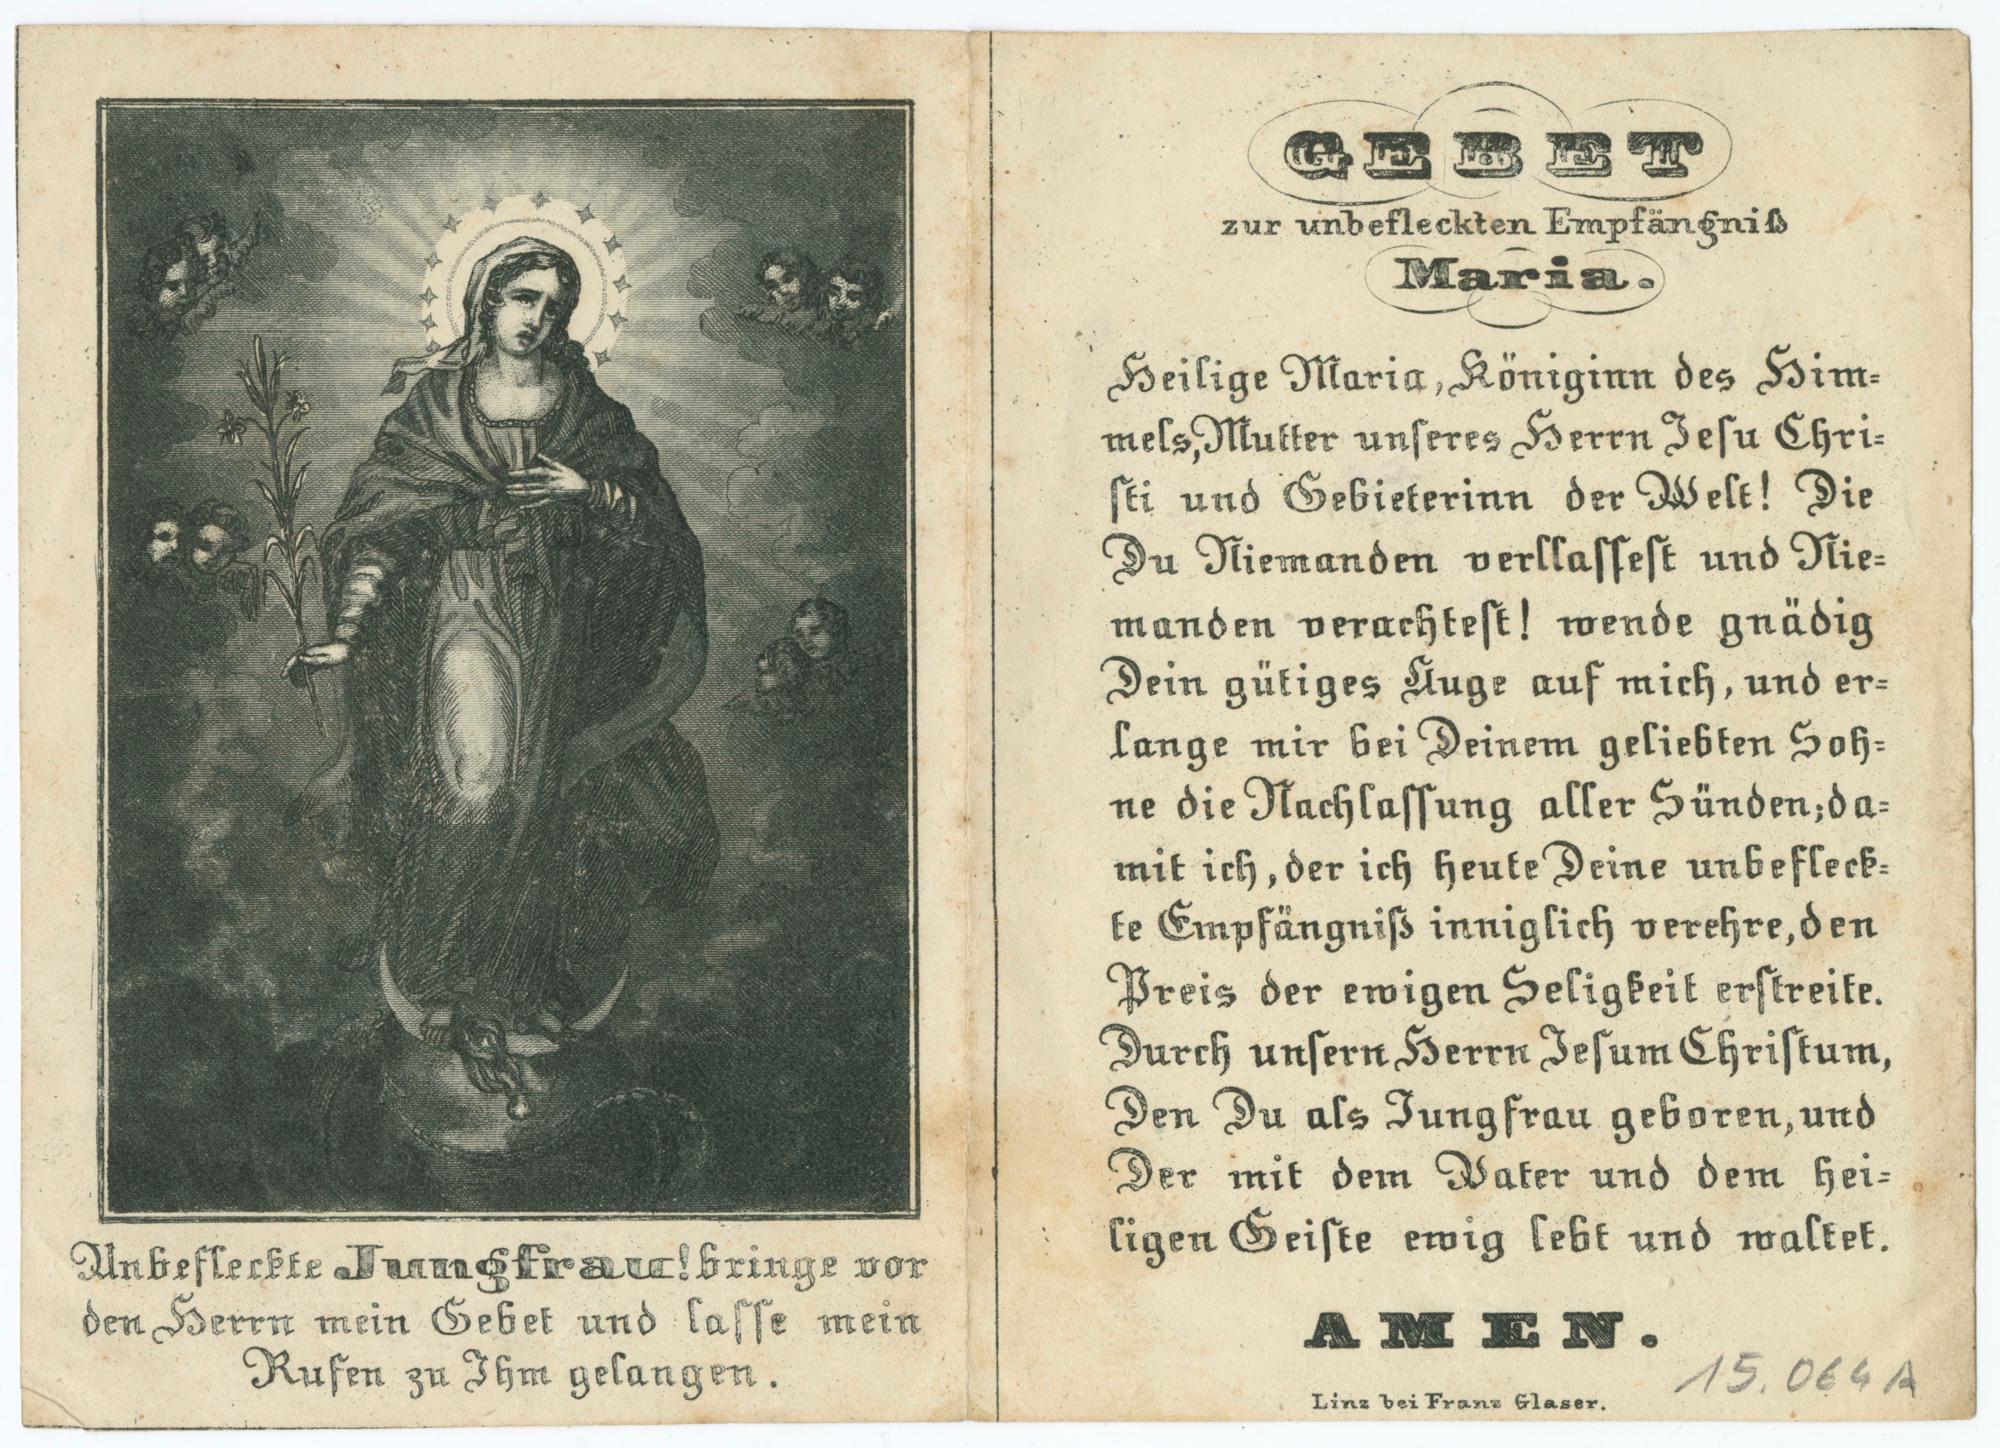 Unbefleckte Jungfrau! bringe vor
den Herrn mein Gebet und lasse mein
Rufen zu Ihm gelangen.
GEBET
zur unbefleckten Empfängniß
Maria.
Heilige Maria, Königinn des Him=
mels, Mutter unseres Herrn Jesu Chri=
sti und Gebieterinn der Welt! Die
Du Niemanden verllassest und Nie=
manden verachtest! wende gnädig
Dein gütiges Auge auf mich, und er=
lange mir bei Deinem geliebten Soh=
ne die Nachlassung aller Sünden; da=
mit ich, der ich heute Deine unbefleck=
te Empfängniß inniglich verehre, den
Preis der ewigen Seligkeit erstreite.
Durch unsern Herrn Jesum Christum,
Den Du als Jungfrau geboren, und
Der mit dem Vater und dem hei=
ligen Geiste ewig lebt und waltet.
AMEN.
15.064A
Linz bei Franz Glaser.